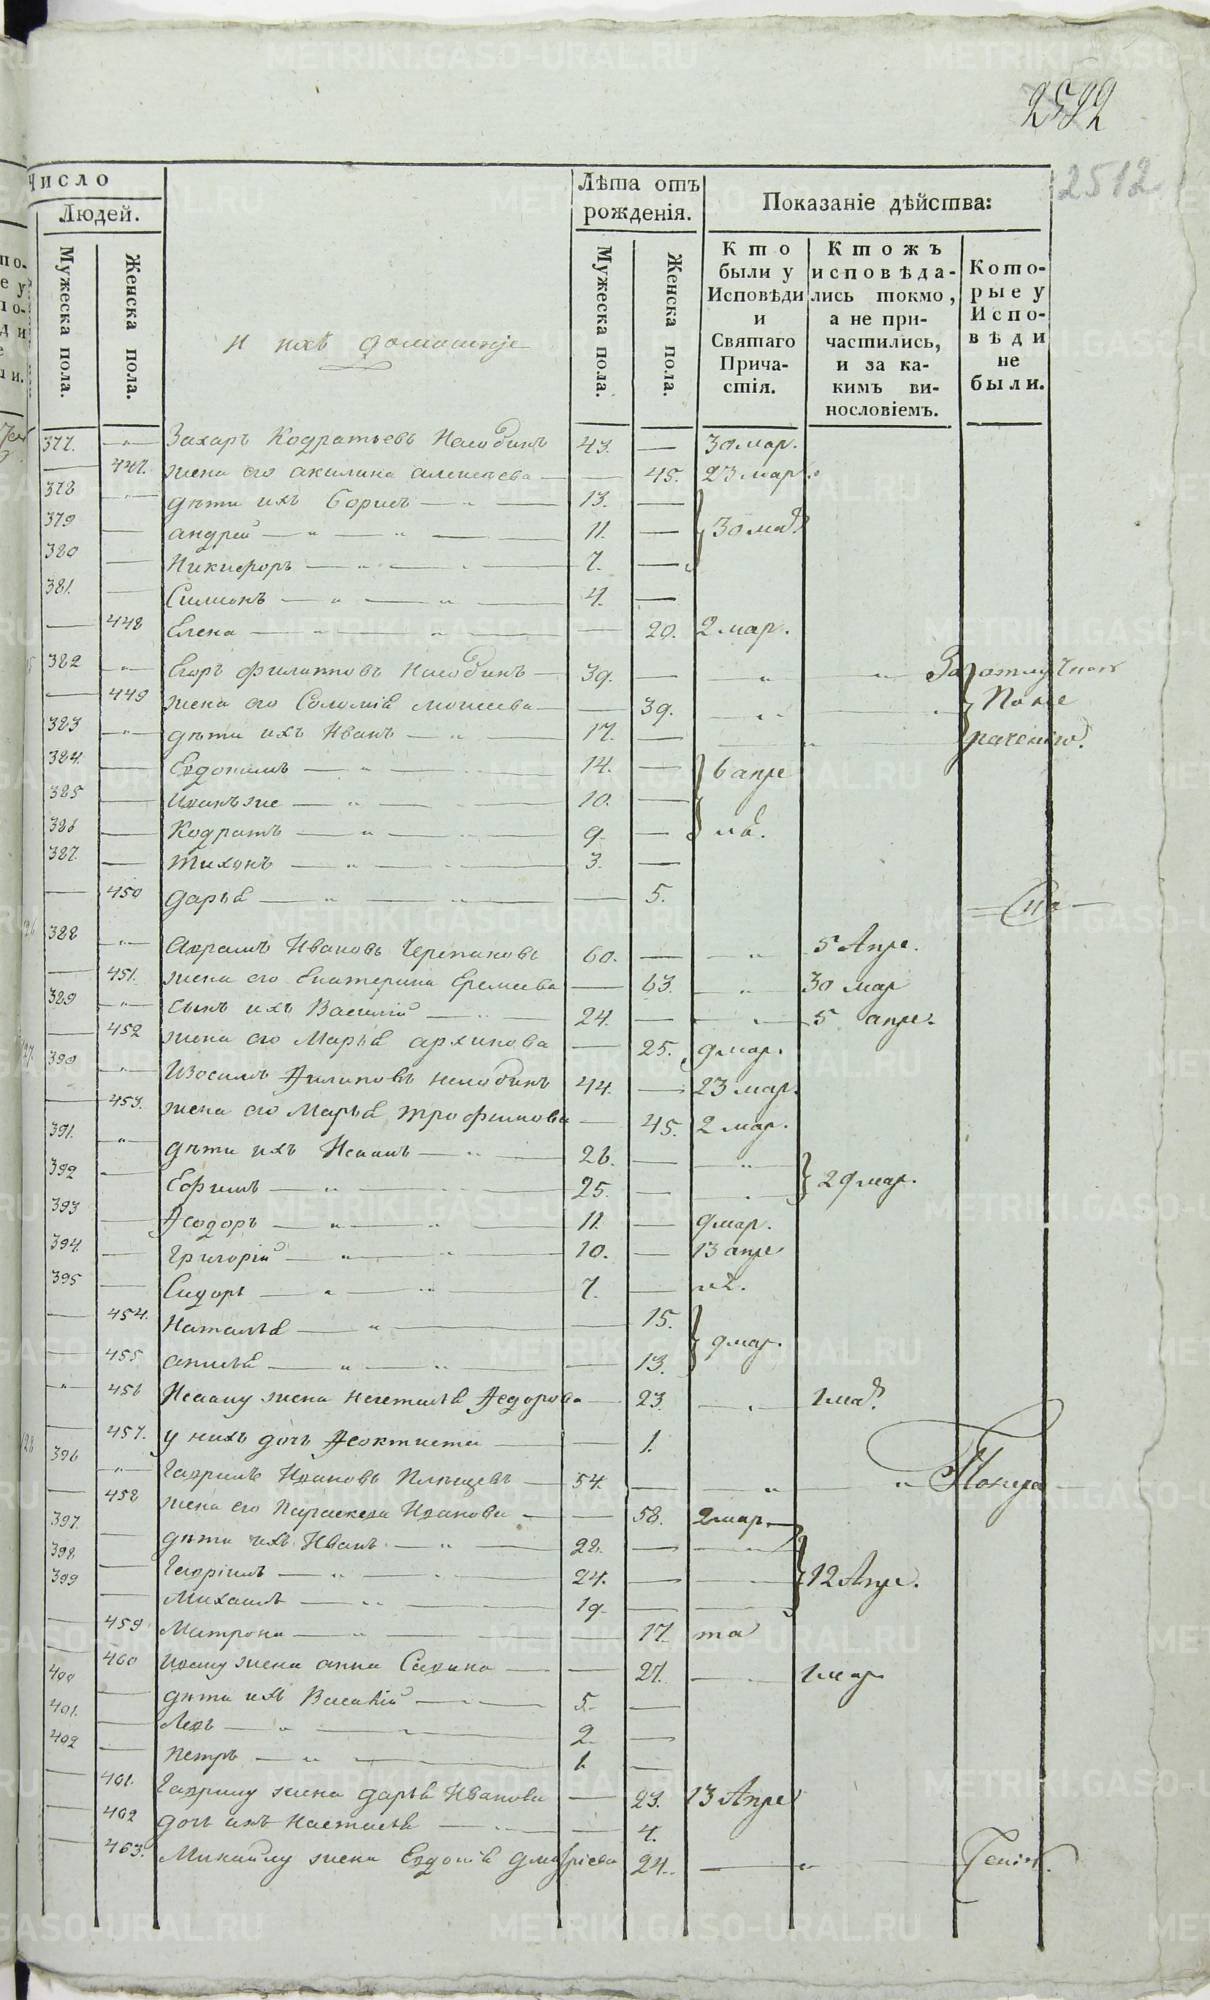 2512
Число
Людей.
Мужеска пола.
Женска пола.
Лѣта отъ рожденія.
Мужеска пола.
Женска пола.
Показаніе дѣйства:
Кто были у Исповѣди и Святаго Причастія.
Ктожъ исповѣдались токмо, а не причастились, и за какимъ винословіемъ.
Которые у Исповѣди не были.
и ихъ домашніе
377. Захаръ Кодратьевъ 43. 30 мар.
447. жена его акилина алексѣева 45. 23 мар.
378 дѣти ихъ Борисъ 13.
379 андрей 11. 30 мар
380 Никифоръ 7.
381. Симионъ 4.
448 Елена 20. 2 мар.
382 Егоръ филиповъ 39. За отлучкою
449 жена его Соломія моисеева 39.
383 дѣти ихъ Иванъ 17.
384. Евдокимъ 14. 6 апре
385 Иванъ же 10.
386 Кодратъ 9
387. Тихонъ 3.
450 дарья 5.
388 Аврамъ Ивановъ Черепановъ 60. 5 Апре.
451. жена его Екатерина Еремеева 63. 30 мар
389 сынъ ихъ Василій 24. 5 апре.
452 жена его Марья архипова 25. 9 мар.
390 Изосимъ Филиповъ 44. 23 мар.
453. жена его Марья трофимова 45. 2 мар.
391. дѣти ихъ Исаакъ 26.
392 Ефимъ 25. 29 мар.
393 Ѳеодоръ 11. 9 мар.
394. Григорій 10. 13 апре
395 Сидоръ 7.
454. Наталья 15.
455 13. 9 мар.
456 Исааку жена Ѳедорова 23.
457. у нихъ дочь Ѳеоктиста 1.
396 Гаврилъ Ивановъ 54.
458 жена его Параскева Иванова 58. 2 мар.
397. дѣти ихъ Иванъ 28.
398 Гавріилъ 24. 12 Апре.
399 Михаилъ 19.
459 Матрона 17.
460 Ивану жена анна Савина 27.
400 дѣти ихъ Василій 5.
401. Левъ 2.
402 Петръ 1.
461. Гаврилу жена дарья Иванова 23. 13 Апре
462 дочь ихъ Настасья 4.
463. Михайлу жена Евдокія дмитріева 24.
METRIKI.GASO-URAL.RU